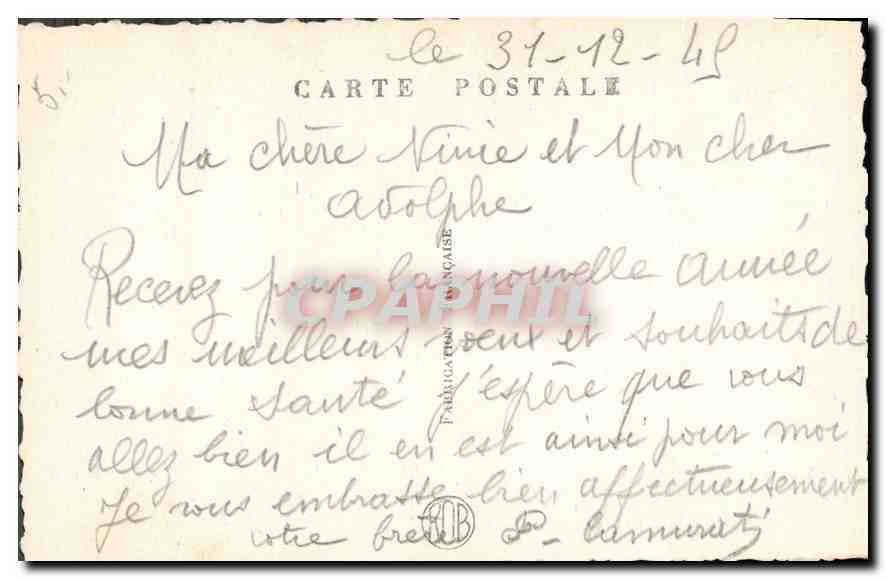 le 31-12-49
5.-
CARTE POSTALE
Ma chère Ninie et Mon cher
Adolphe
Recevez pour la nouvelle année
mes meilleurs voeux et souhaits de
bonne santé j'espère que vous
allez bien il en est ainsi pour moi
Je vous embrasse bien affectueusement
votre frère P. Camurati
FABRICATION FRANÇAISE
CPAPHIL